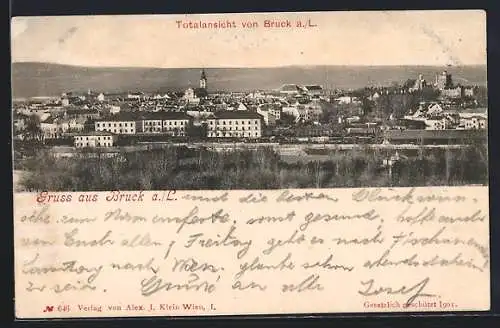 Totalansicht von Bruck a./L.
Gruss aus Bruck a./L. und die besten Glückwün-
sche zum Namensfeste, sonst gesund, hoffe auch
von Euch allen, Freitag geht es nach Fischamend
Samstag nach Wien, glaube schon abends daheim
zu sein. Grüsse an alle Josef
№ 646 Verlag von Alex. J. Klein Wien, I.
Gesetzlich geschützt 1901.